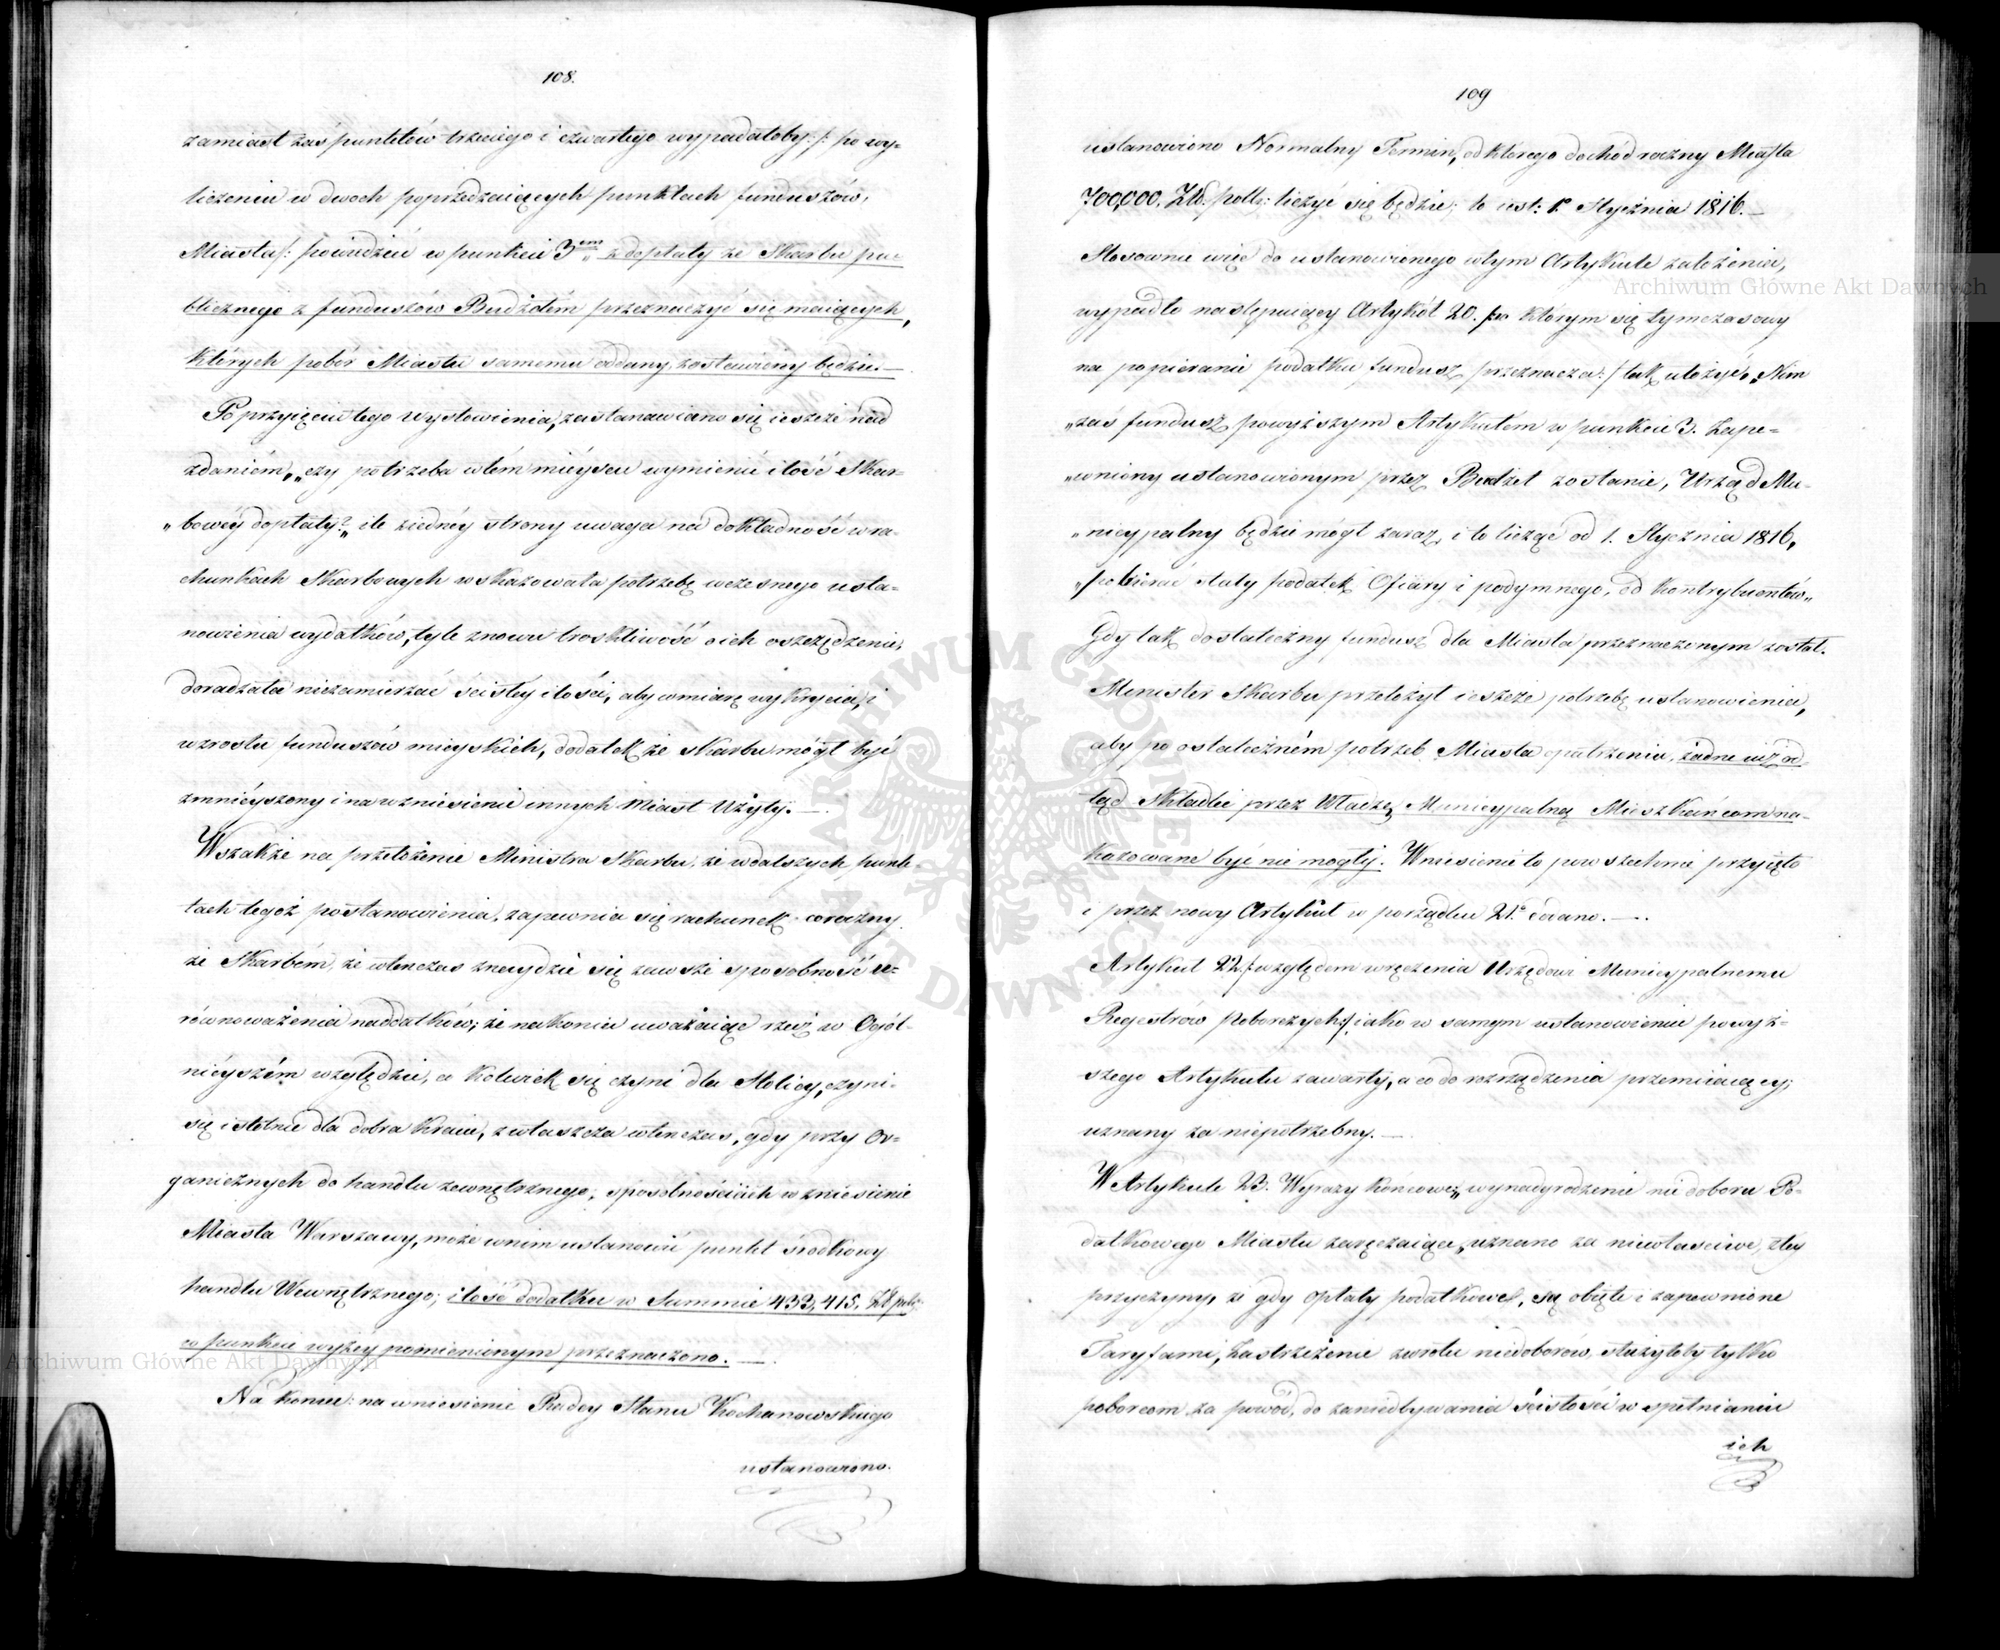 108.
zamiast zaś punktów trzeciego i czwartego wypadałoby /: po wy-
liczeniu w dwoch poprzedzaiących punktach funduszów,
Miasta /: powiedzieć w punkcie 3em „z dopłaty ze Skarbu pu-
blicznego z funduszów Budżetem przeznaczyć się maiących,
których pobór Miastu samemu oddany, zostawiony będzie. —
Po przyięciu tego wysłowienia, zastanawiano się ieszcze nad
zdaniem, „czy potrzeba wtém mieyscu wymienić ilość Skar-
„bowéy dopłaty?„ ile ziednéy strony uwaga na dokładność w ra-
chunkach Skarbowych wskazowała potrzebę wczesnego usta-
nowienia wydatków, tyle znowu troskliwość o ich oszczędzenie,
doradzała niezamierzać ścisłéy ilości, aby w miarę wykrycia, i
wzrostu funduszów mieyskich, dodatek ze skarbu mógł być
zmniéyszony i na wzniesienie innych Miast Użyty. —
Wszakże na przełożenie Ministra Skarbu, że w dalszych punk-
tach tegoż postanowienia, zapewnia się rachunek coroczny
ze Skarbem, że wtenczas znaydzie się zawsze sposobność z-
równoważenia naddatków; że nakoniec uważaiąc rzecz w Ogól-
niéyszém względzie, co kolwiek się czyni dla Stolicy, czyni-
się istotnie dla dobra Kraiu, zwłaszcza wtenczas, gdy przy Or-
ganicznych do handlu zewnętrznego, sposobnościach wzniesienie
Miasta Warszawy, może w nim ustanowić punkt środkowy
handlu Wewnętrznego; ilość dodatku w Summie 433,415, Zł pol:
w punkcie wyżéy pomienionym przeznaczono. —
Na koniec: na wniesienie Radcy Stanu Kochanowskiego
ustanowiono.
109
ustanowiono Normalny Termin, od którego dochod roczny Miasta
700,000. Złł. pollˢ: liczyć się będzie; to iest: 1º Stycznia 1816. —
Stosownie więc do ustanowionego w tym Artykule założenia,
wypadło następuiący Artykół 20. /: w którym się tymczasowy
na popieranie podatku fundusz przeznacza: / tak ułożyć: „Nim
„zaś fundusz powyższym Artykułem w punkcie 3. Zape-
„wniony ustanowionym przez Budżet zostanie, Urząd Mu-
„nicypalny będzie mógł zaraz, i to licząc od 1. Stycznia 1816,
„pobierać stały podatek Ofiary i podymnego, od kontrybuentów„
Gdy tak dostateczny fundusz dla Miasta przeznaczonym został.
Minister Skarbu przełożył ieszcze potrzebę ustanowienia,
aby po ostateczném potrzeb Miasta opatrzeniu, żadne iuż od-
tąd składki przez Władzę Municypalną Mieszkańcom na-
kazowane być nie mogły. Wniesienie to powszechnie przyięto
i przez nowy Artykuł w porządku 21º oddano. —
Artykuł 22. /: względem wręczenia Urzędowi Municypalnemu
Regestrów poborczych :/ iako w samym ustanowieniu powyż-
szego Artykułu zawarty, a co do rozrządzenia przemiiaiący;
uznany za niepotrzebny. —
W Artykule 23. Wyrazy końcowe: „wynadgrodzenie niedoboru Po-
datkowego Miastu zaręczaiące„ uznano za niewłaściwe, z téy
przyczyny, że gdy opłaty podatkowe, są obięte i zapewnione
Taryfami, Zastrzeżenie zwrotu niedoborów, służyłoby tylko
poborcom za powód, do zaniedbywania ścisłości w spełnianiu
ich
Archiwum Główne Akt Dawnych
Archiwum Główne Akt Dawnych
ARCHIWUM GŁÓWNE AKT DAWNYCH